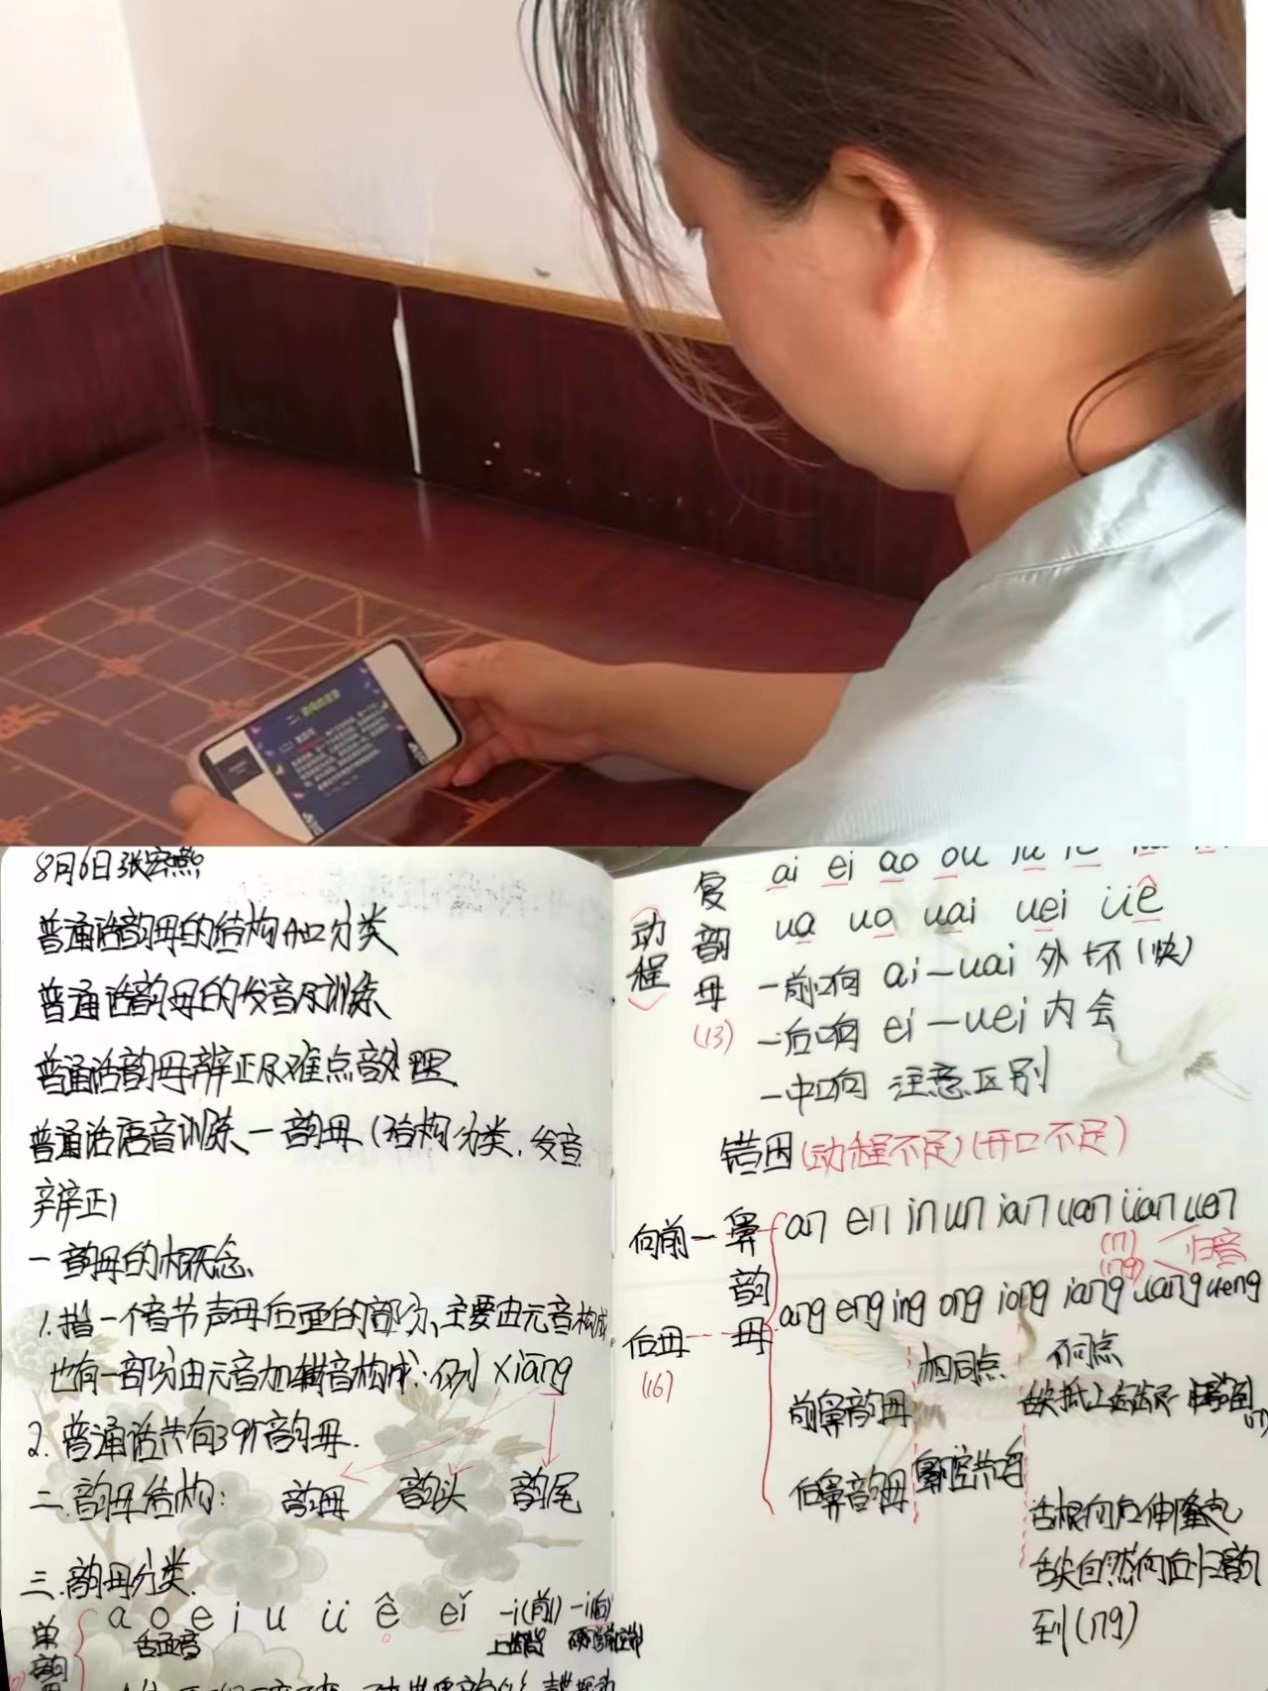 二、韵母的发音
8月6日张宏燕
普通话韵母的结构和分类
普通话韵母的发音及训练
普通话韵母辨正及难点音处理
普通话语音训练一韵母(结构分类,发音
辨正)
一 韵母的概念
1.指一个音节声母后面的部分,主要由元音构成
也有一部分由元音加辅音构成:例 xiāng
2. 普通话共有39个韵母.
二.韵母结构: 韵母 韵头 韵尾
三.韵母分类.
单韵 a o e i u ü ê er -i(前) -i(后)
舌面音
复韵母 (13)
(动程)
ai ei ao ou
ua uo uai uei üê
一前响 ai—uai 外 坏(快)
一后响 ei—uei 内 会
一中响 注意区别
错因(动程不足)(开口不足)
向前一鼻韵母 an en in un ian uan üan uen
(n) (ng) 归音
后母 (16) ang eng ing ong iong iang uang ueng
相同点 不同点
前鼻韵母 舌尖抵上齿龈
后鼻韵母 鼻腔共鸣
舌根向后伸隆起
舌尖自然向后归韵
到(ng)